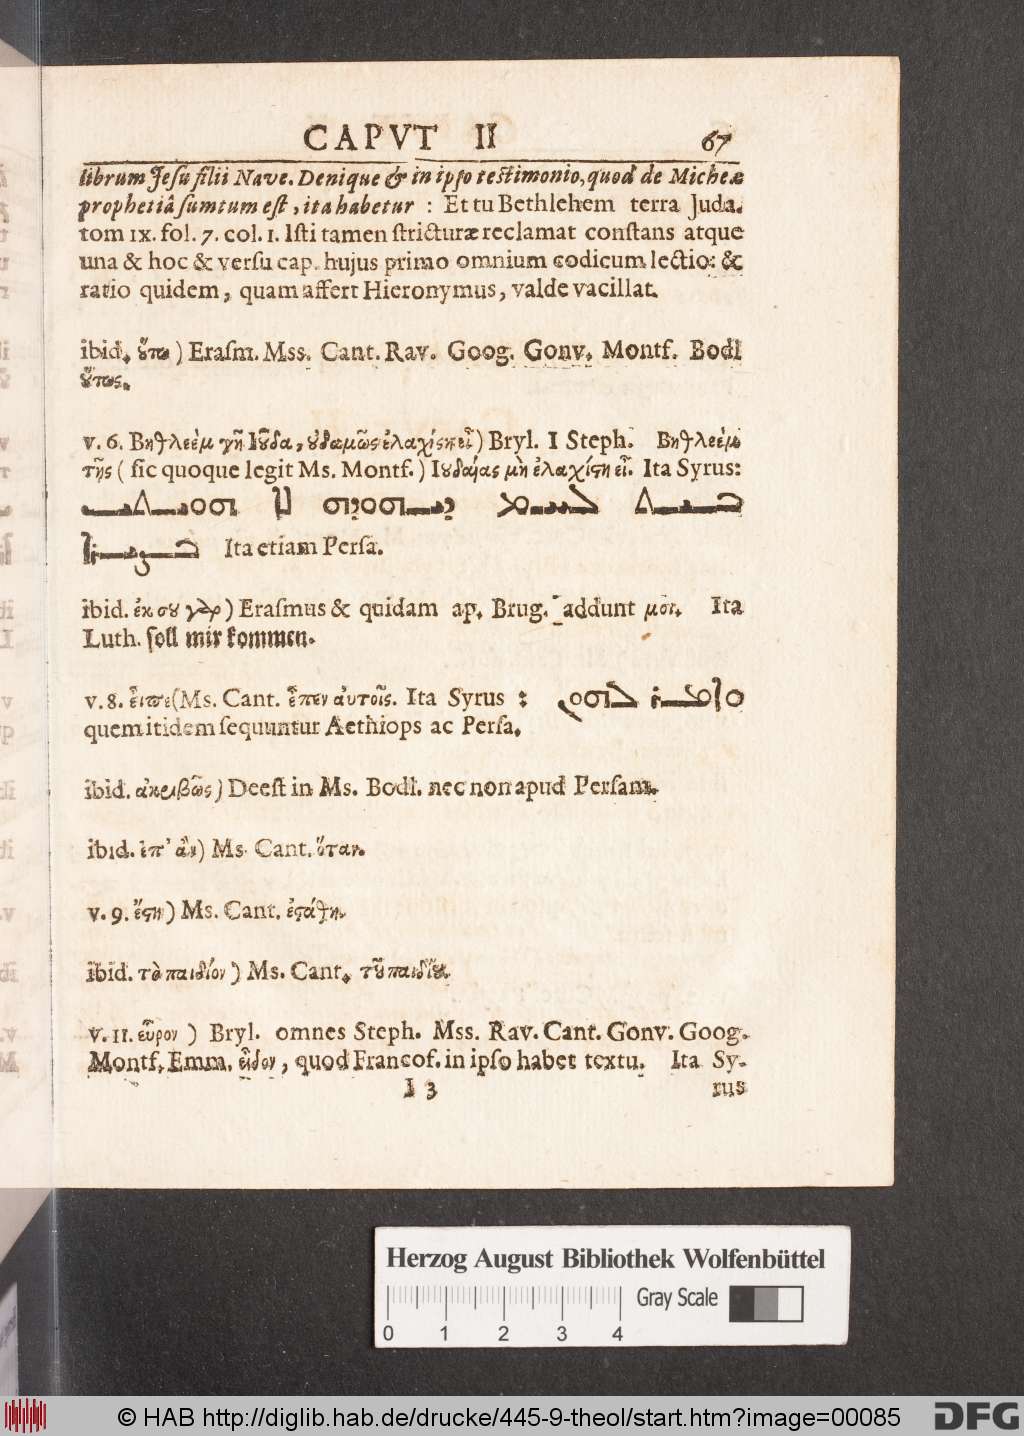 CAPVT II 67
librum Jesu filii Nave. Denique & in ipso testimonio, quod de Micheæ
prophetiâ sumtum est, ita habetur : Et tu Bethlehem terra Juda.
tom IX. fol. 7. col. 1. Isti tamen stricturæ reclamat constans atque
una & hoc & versu cap. hujus primo omnium codicum lectio: &
ratio quidem, quam affert Hieronymus, valde vacillat.
ibid. οὕτω ) Erasm. Mss. Cant. Rav. Goog. Gonv. Montf. Bodl
οὕτως.
v. 6. Βηθλεὲμ γῆ Ἰούδα, οὐδαμῶς ἐλαχίστη εἶ) Bryl. I Steph. Βηθλεὲμ
τῆς ( sic quoque legit Ms. Montf. ) Ιουδαίας μὴ ἐλαχίστη εἶ. Ita Syrus:
Ita etiam Persa.
ibid. ἐκ σου γὰρ ) Erasmus & quidam ap. Brug. addunt μοι. Ita
Luth. soll mir kommen.
v. 8. εἶπε (Ms. Cant. εἶπεν αὐτοῖς. Ita Syrus :
quem itidem sequuntur Aethiops ac Persa.
ibid. ἀκριβῶς ) Deest in Ms. Bodl. nec non apud Persam.
ibid. ἐπ' ἂν) Ms. Cant. ὅταν.
v. 9. ἔστη) Ms. Cant. ἐστάθη.
ibid. τὸ παιδίον ) Ms. Cant. τοῦ παιδίου.
v. 11. εὗρον ) Bryl. omnes Steph. Mss. Rav. Cant. Gonv. Goog.
Montf. Emm. εἶδον, quod Francof. in ipso habet textu. Ita Sy-
I 3 rus
Herzog August Bibliothek Wolfenbüttel
0 1 2 3 4 Gray Scale
© HAB http://diglib.hab.de/drucke/445-9-theol/start.htm?image=00085 DFG